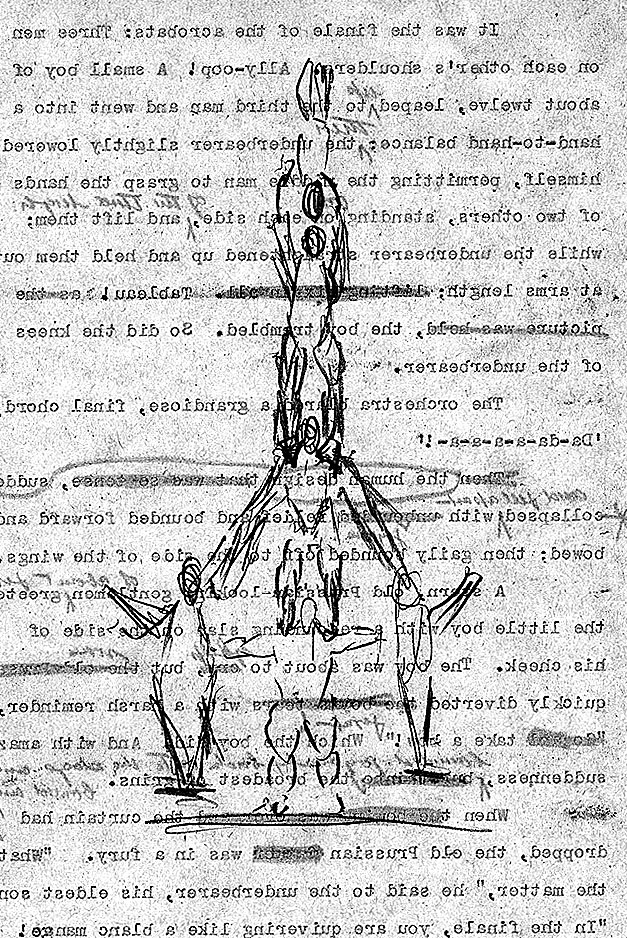 It was the finale of the acrobats: Three men
on each other's shoulders. Ally-oop! A small boy of
about twelve, leaped to the third man and went into a
hand-to-hand balance; the underbearer slightly lowered
himself, permitting the middle man to grasp the hands
of two others, standing on each side, and lift them;
while the underbearer straightened up and held them out
at arms length; lifting all. Tableau! as the
picture was held, the boy trembled. So did the knees
of the underbearer.
The orchestra blared a grandiose, final chord,
'Da-da-a-a-a-a-!"
Then the human design that was so tense, sudde
collapsed with and bounded forward and
bowed; then gaily bounded off to the side of the wings.
A stern, old Prussian-looking gentlemen greete
the little boy with a resounding slap on the side of
his cheek. The boy was about to cry, but the old man
quickly diverted the tears with a harsh reminder,
"Go take a bow!" Which the boy did. And with amaz
suddenness, the broadest of grins.
When the the curtain had
dropped, the old Prussian was in a fury. "What
the matter," he said to the underbearer, his eldest son
"In the finale, you are quivering like a blanc mange!